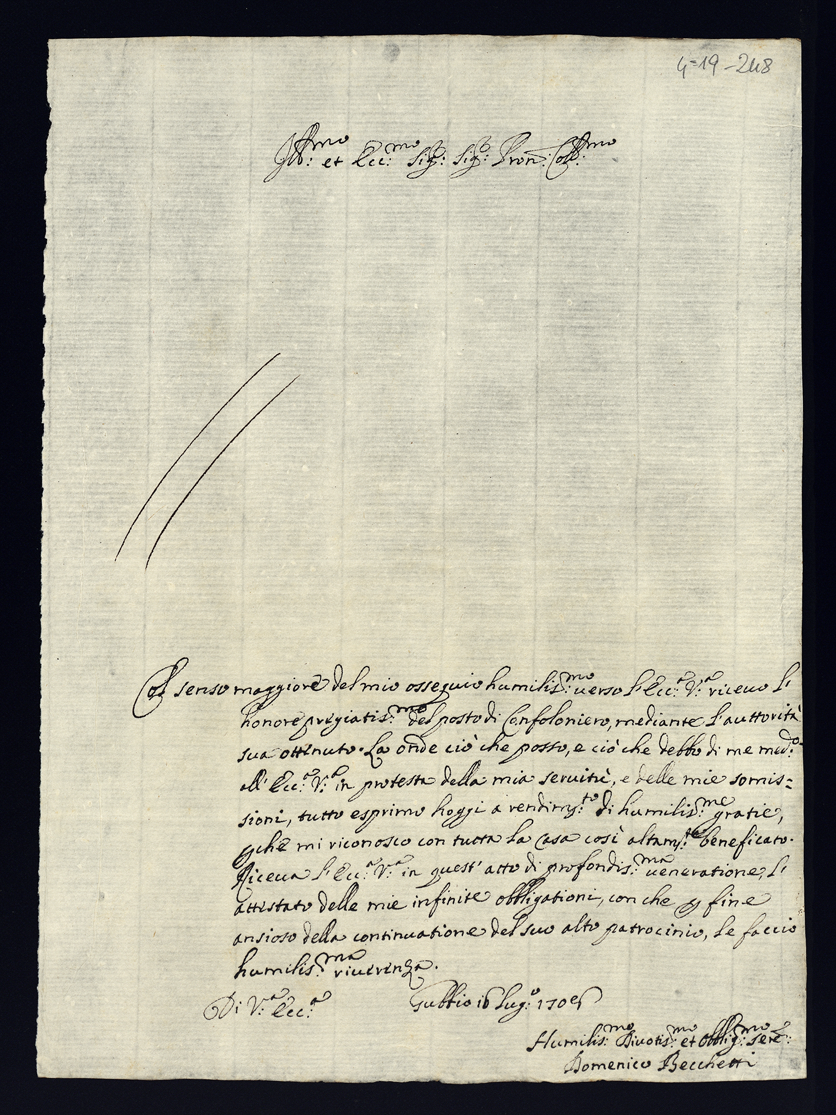 4-19-248
Ill:mo et Ecc:mo Sig:r Sig:r Pron: Coll:mo
Col senso maggiore del mio ossequio humilis:mo verso l'Ecc:a V:a ricevo l'
honore pregiatis:mo del posto di Confaloniero, mediante l'auttorità
sua ottenuto. La onde ciò che posto, e ciò che debbo di me med:o
all' Ecc:a V:a in protesta della mia servitù, e delle mie somis=
sioni, tutto esprimo hoggi a rendim:to di humilis:me gratie,
che mi riconosco con tutta la Casa così altam:te beneficato.
Riceva l'Ecc:a V:a in quest' atto di profondis:ma veneratione, l'
attestato delle mie infinite obbligationi, con che p fine
ansioso della continuatione del suo alto patrocinio, le faccio
humilis:ma riverenza.
Di V:a Ecc:a
Gubbio 16 Lug:o
Humilis:mo Divotis:mo et Obblig:mo Ser:e
Domenico Becchetti